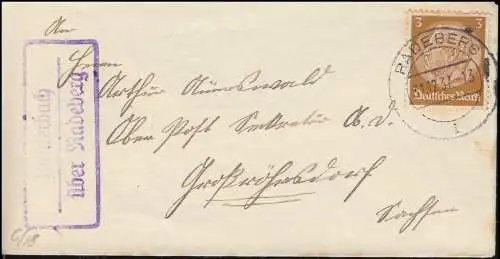 An
Herrn
Arthur
Ober Post Sekretär a. D.
Großröhrsdorf
Sachsen
über Radeberg
RADEBERG
3 3
Deutsches Reich
6/18